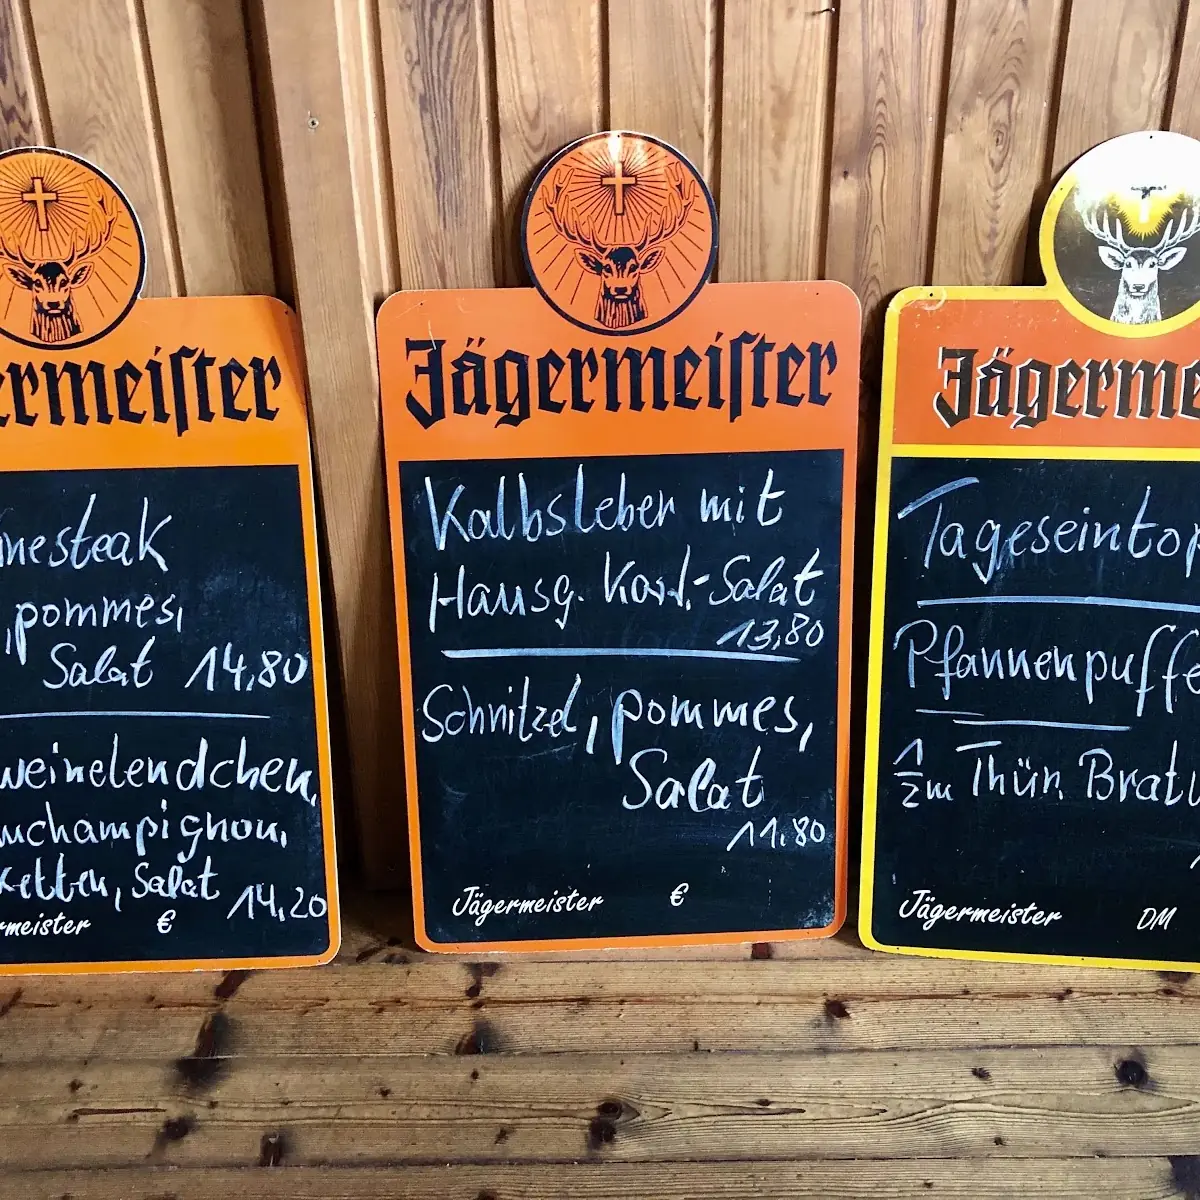 Jägermeister
Kalbsleber mit
Hausg. Kart.-Salat
13,80
Schnitzel, pommes,
Salat
11.80
Jägermeister €
ermeister
nesteak
, pommes,
Salat 14,80
weinelendchen,
mchampignon,
ketten, Salat 14,20
rmeister €
Jägerme
Tageseintop
Pfannenpuffe
1/2 m Thür. Brat
Jägermeister DM